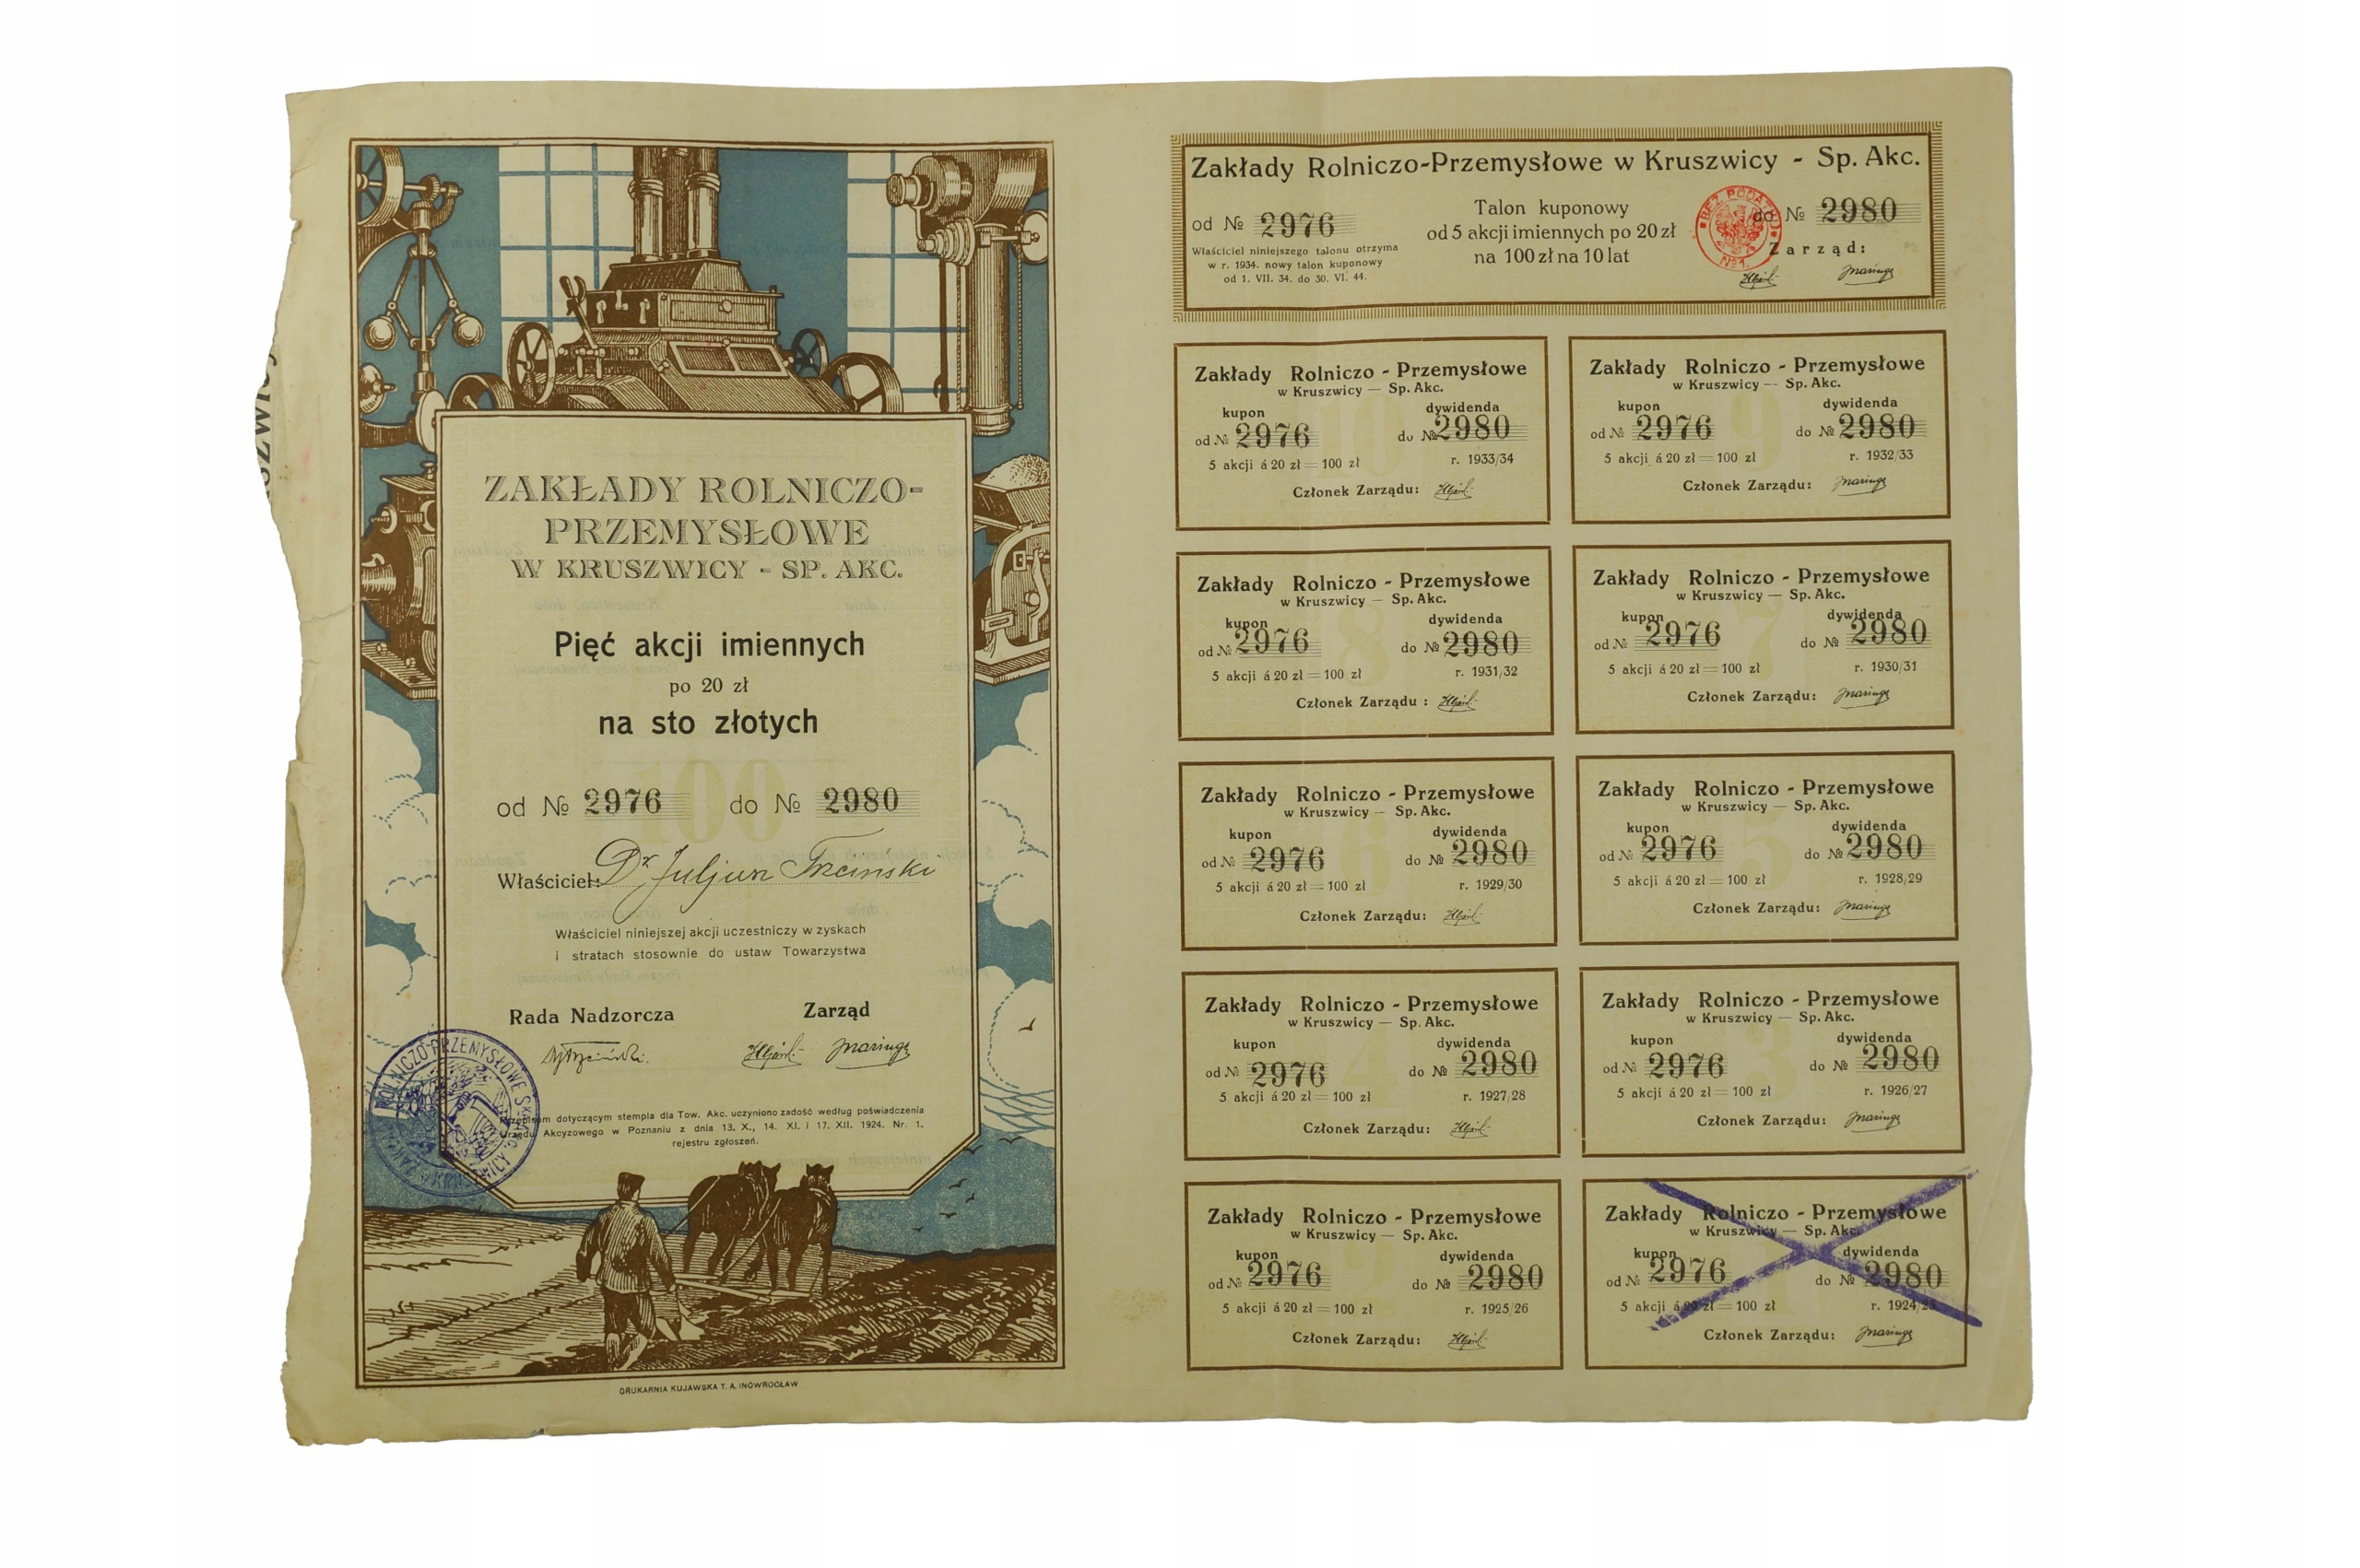 ZAKŁADY ROLNICZO-
PRZEMYSŁOWE
W KRUSZWICY - SP. AKC.
Pięć akcji imiennych
po 20 zł
na sto złotych
100
od № 2976 do № 2980
Właściciel: Dr Juljan Trzciński
Właściciel niniejszej akcji uczestniczy w zyskach
i stratach stosownie do ustaw Towarzystwa
Rada Nadzorcza Zarząd
Maringe
Przepisom dotyczącym stempla dla Tow. Akc. uczyniono zadość według poświadczenia
Urzędu Akcyzowego w Poznaniu z dnia 13. X., 14. XI. i 17. XII. 1924. Nr. 1.
rejestru zgłoszeń.
ROLNICZO-PRZEMYSŁOWE
DRUKARNIA KUJAWSKA T. A. INOWROCŁAW
Zakłady Rolniczo-Przemysłowe w Kruszwicy - Sp. Akc.
od № 2976
Talon kuponowy
od 5 akcji imiennych po 20 zł
na 100 zł na 10 lat
do № 2980
Właściciel niniejszego talonu otrzyma
w r. 1934. nowy talon kuponowy
od 1. VII. 34. do 30. VI. 44.
Zarząd:
Maringe
BEZ PODATKU
№ 1.
Zakłady Rolniczo - Przemysłowe
w Kruszwicy — Sp. Akc.
kupon dywidenda
od № 2976 do № 2980
5 akcji á 20 zł = 100 zł r. 1933/34
Członek Zarządu:
10
Zakłady Rolniczo - Przemysłowe
w Kruszwicy -- Sp. Akc.
kupon dywidenda
od № 2976 do № 2980
5 akcji á 20 zł = 100 zł r. 1932/33
Członek Zarządu: Maringe
9
Zakłady Rolniczo - Przemysłowe
w Kruszwicy — Sp. Akc.
kupon dywidenda
od № 2976 do № 2980
5 akcji á 20 zł = 100 zł r. 1931/32
Członek Zarządu :
8
Zakłady Rolniczo - Przemysłowe
w Kruszwicy — Sp. Akc.
kupon dywidenda
od № 2976 do № 2980
5 akcji á 20 zł = 100 zł r. 1930/31
Członek Zarządu: Maringe
7
Zakłady Rolniczo - Przemysłowe
w Kruszwicy — Sp. Akc.
kupon dywidenda
od № 2976 do № 2980
5 akcji á 20 zł = 100 zł r. 1929/30
Członek Zarządu:
6
Zakłady Rolniczo - Przemysłowe
w Kruszwicy — Sp. Akc.
kupon dywidenda
od № 2976 do № 2980
5 akcji á 20 zł = 100 zł r. 1928/29
Członek Zarządu: Maringe
5
Zakłady Rolniczo - Przemysłowe
w Kruszwicy — Sp. Akc.
kupon dywidenda
od № 2976 do № 2980
5 akcji á 20 zł = 100 zł r. 1927/28
Członek Zarządu:
4
Zakłady Rolniczo - Przemysłowe
w Kruszwicy — Sp. Akc.
kupon dywidenda
od № 2976 do № 2980
5 akcji á 20 zł = 100 zł r. 1926/27
Członek Zarządu: Maringe
3
Zakłady Rolniczo - Przemysłowe
w Kruszwicy — Sp. Akc.
kupon dywidenda
od № 2976 do № 2980
5 akcji á 20 zł = 100 zł r. 1925/26
Członek Zarządu:
2
Zakłady Rolniczo - Przemysłowe
w Kruszwicy — Sp. Akc.
kupon dywidenda
od № 2976 do № 2980
5 akcji á 20 zł = 100 zł r. 1924/25
Członek Zarządu: Maringe